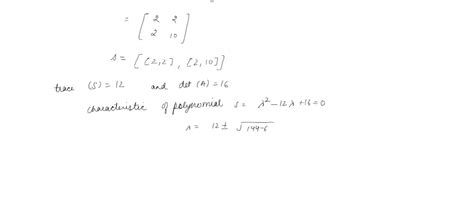 = [ 2 2
2 10 ]
s = [ [2,2] , [2,10] ]
trace (S) = 12 and det (A) = 16
characteristic of polynomial s = λ² - 12λ + 16 = 0
λ = 12 ± √144-6